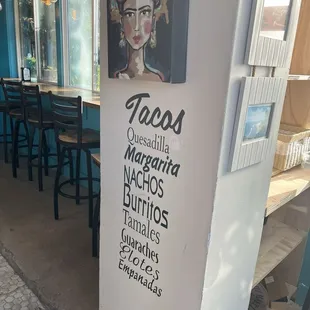 Tacos
Quesadilla
Margarita
NACHOS
Burritos
Tamales
Guaraches
Elotes
Empanadas